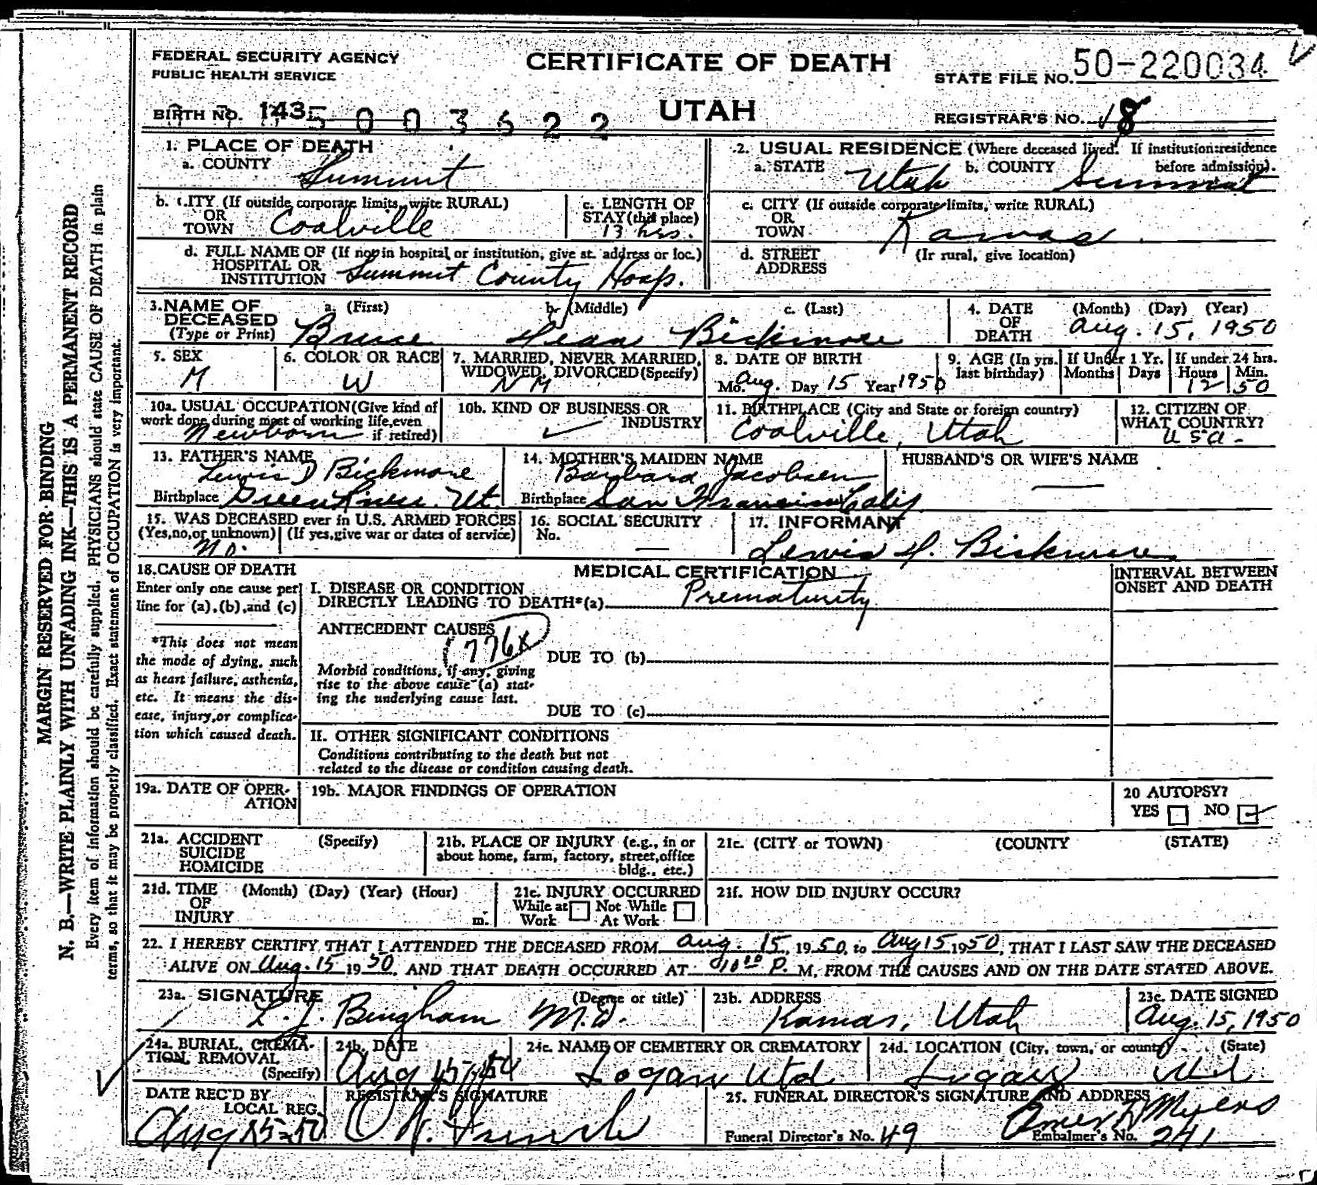 FEDERAL SECURITY AGENCY
PUBLIC HEALTH SERVICE
CERTIFICATE OF DEATH
STATE FILE NO. 50-220034
BIRTH NO. 143 5003622
UTAH
REGISTRAR'S NO. 18
1. PLACE OF DEATH
a. COUNTY Summit
2. USUAL RESIDENCE (Where deceased lived. If institution: residence before admission).
a. STATE Utah b. COUNTY Summit
b. CITY (If outside corporate limits, write RURAL)
OR
TOWN Coalville
c. LENGTH OF
STAY (this place)
13 hrs.
c. CITY (If outside corporate limits, write RURAL)
OR
TOWN Kamas
d. FULL NAME OF (If not in hospital or institution, give st. address or loc.)
HOSPITAL OR
INSTITUTION Summit County Hosp.
d. STREET (If rural, give location)
ADDRESS
3. NAME OF DECEASED (Type or Print)
a. (First) Bruce
b. (Middle) Dean
c. (Last) Bickmore
4. DATE OF DEATH (Month) (Day) (Year)
Aug. 15, 1950
5. SEX
M
6. COLOR OR RACE
W
7. MARRIED, NEVER MARRIED, WIDOWED, DIVORCED (Specify)
NM
8. DATE OF BIRTH
Mo. Aug. Day 15 Year 1950
9. AGE (In yrs. last birthday)
If Under 1 Yr.
Months Days
If under 24 hrs.
Hours Min.
12 50
10a. USUAL OCCUPATION (Give kind of work done during most of working life, even if retired)
Newborn
10b. KIND OF BUSINESS OR INDUSTRY
11. BIRTHPLACE (City and State or foreign country)
Coalville, Utah
12. CITIZEN OF WHAT COUNTRY?
USA.
13. FATHER'S NAME
Lewis D Bickmore
Birthplace Green River Ut.
14. MOTHER'S MAIDEN NAME
Barbara Jacobsen
Birthplace San Francisco Calif
HUSBAND'S OR WIFE'S NAME
15. WAS DECEASED ever in U.S. ARMED FORCES
(Yes, no, or unknown) (If yes, give war or dates of service)
No.
16. SOCIAL SECURITY
No.
17. INFORMANT
Lewis D. Bickmore
18. CAUSE OF DEATH
Enter only one cause per line for (a), (b), and (c)
*This does not mean the mode of dying, such as heart failure, asthenia, etc. It means the disease, injury, or complication which caused death.
MEDICAL CERTIFICATION
INTERVAL BETWEEN
ONSET AND DEATH
I. DISEASE OR CONDITION
DIRECTLY LEADING TO DEATH*(a) Prematurity
ANTECEDENT CAUSES
776X
DUE TO (b)
Morbid conditions, if any, giving
rise to the above cause (a) stating
the underlying cause last.
DUE TO (c)
II. OTHER SIGNIFICANT CONDITIONS
Conditions contributing to the death but not
related to the disease or condition causing death.
19a. DATE OF OPERATION
19b. MAJOR FINDINGS OF OPERATION
20 AUTOPSY?
YES NO
21a. ACCIDENT (Specify)
SUICIDE
HOMICIDE
21b. PLACE OF INJURY (e.g., in or
about home, farm, factory, street, office
bldg., etc.)
21c. (CITY or TOWN) (COUNTY (STATE)
21d. TIME (Month) (Day) (Year) (Hour)
OF
INJURY m.
21e. INJURY OCCURRED
While at Work Not While At Work
21f. HOW DID INJURY OCCUR?
22. I HEREBY CERTIFY THAT I ATTENDED THE DECEASED FROM Aug. 15, 1950, to Aug 15, 1950, THAT I LAST SAW THE DECEASED
ALIVE ON Aug. 15 1950, AND THAT DEATH OCCURRED AT P. M, FROM THE CAUSES AND ON THE DATE STATED ABOVE.
23a. SIGNATURE (Degree or title)
L. J. Bingham M.D.
23b. ADDRESS
Kamas, Utah
23c. DATE SIGNED
Aug. 15, 1950
24a. BURIAL, CREMATION, REMOVAL (Specify)
24b. DATE
Aug
24c. NAME OF CEMETERY OR CREMATORY
Logan Utd
24d. LOCATION (City, town, or county) (State)
Logan
DATE REC'D BY LOCAL REG.
Aug 15-50
REGISTRAR'S SIGNATURE
25. FUNERAL DIRECTOR'S SIGNATURE AND ADDRESS
Myers
Funeral Director's No. 49
Embalmer's No. 241
MARGIN RESERVED FOR BINDING
N. B.—WRITE PLAINLY WITH UNFADING INK—THIS IS A PERMANENT RECORD
Every item of information should be carefully supplied. PHYSICIANS should state CAUSE OF DEATH in plain
terms, so that it may be properly classified. Exact statement of OCCUPATION is very important.